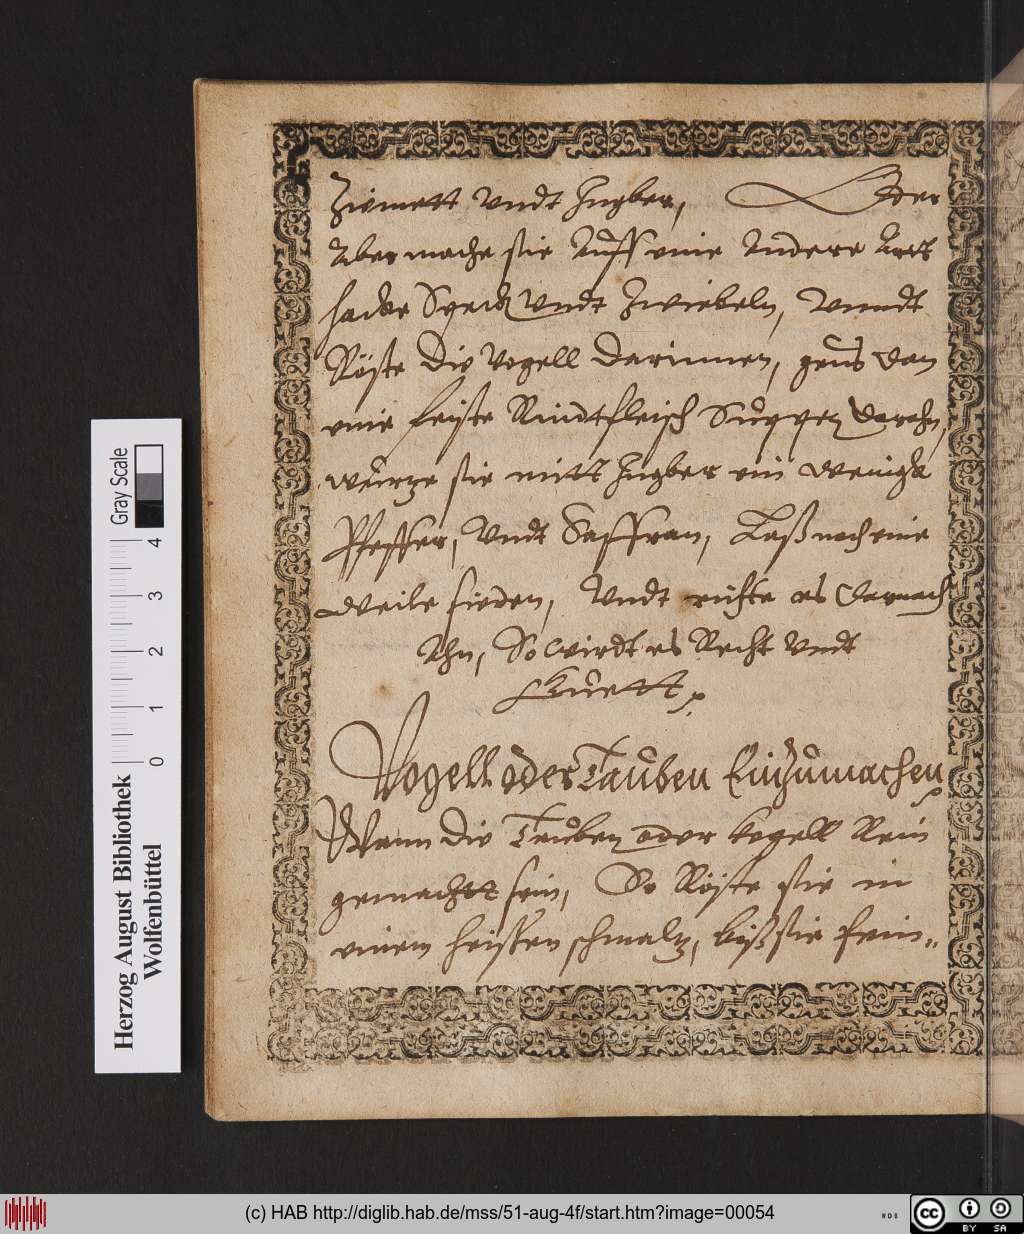 Zimett Vndt Ingber, Oder
Aber mache sie Auff eine Andere Artt
hacke Speck Vndt Zwiebeln, Vnndt
Röste die Vogell darinnen, geus dan
eine feiste Rindtfleisch Suppen darahn,
würtze sie mitt Ingber ein wenigk
Pfeffer, Vndt Saffran, Laß noch eine
Weile sieden, Vndt richte es darnach
Ahn, So wirdt es Recht Vndt
Guett
Vogell oder Tauben Einzumachen
Wann die Tauben oder Vogell Rein
gemachtt sein, So Röste sie in
einem heissen schmaltz, biß sie fein
Gray Scale
4
3
2
1
0
Herzog August Bibliothek
Wolfenbüttel
(c) HAB http://diglib.hab.de/mss/51-aug-4f/start.htm?image=00054
WDB
cc
BY SA